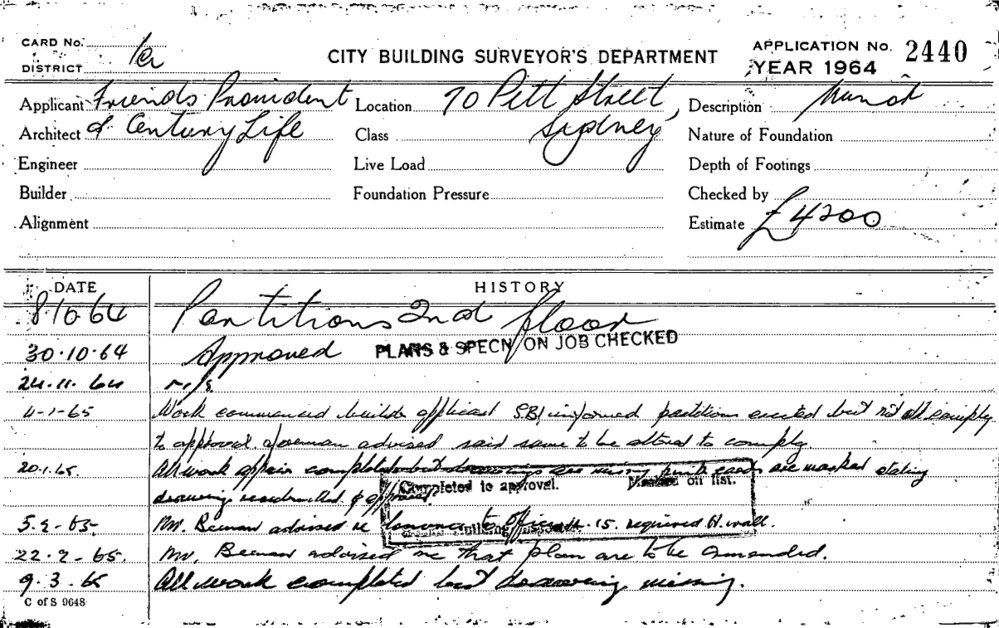 CARD No.
DISTRICT
CITY BUILDING SURVEYOR'S DEPARTMENT
APPLICATION No. 2440
YEAR 1964
Applicant Friends Provident Location 70 Pitt Street, Description
Architect & Century Life Class Sydney Nature of Foundation
Engineer Live Load Depth of Footings
Builder Foundation Pressure Checked by
Alignment Estimate £4200
DATE HISTORY
8.10.64 Partitions 2nd floor
30.10.64 Approved PLANS & SPECN ON JOB CHECKED
24.11.64 n/s
4-1-65 Work commenced builder applicant SBI informed partitions erected but not all comply
to approval foreman advised said same to be altered to comply
20.1.65 All work appears completed but drawings are missing are marked stating
drawings
Completed to approval. Marked off list.
5.2-65 Mr. Beeman advised re 15. required wall.
22-2-65. Mr. Beeman advised me that plan are to be amended.
9.3.65 All work completed but drawing missing.
C of S 9648